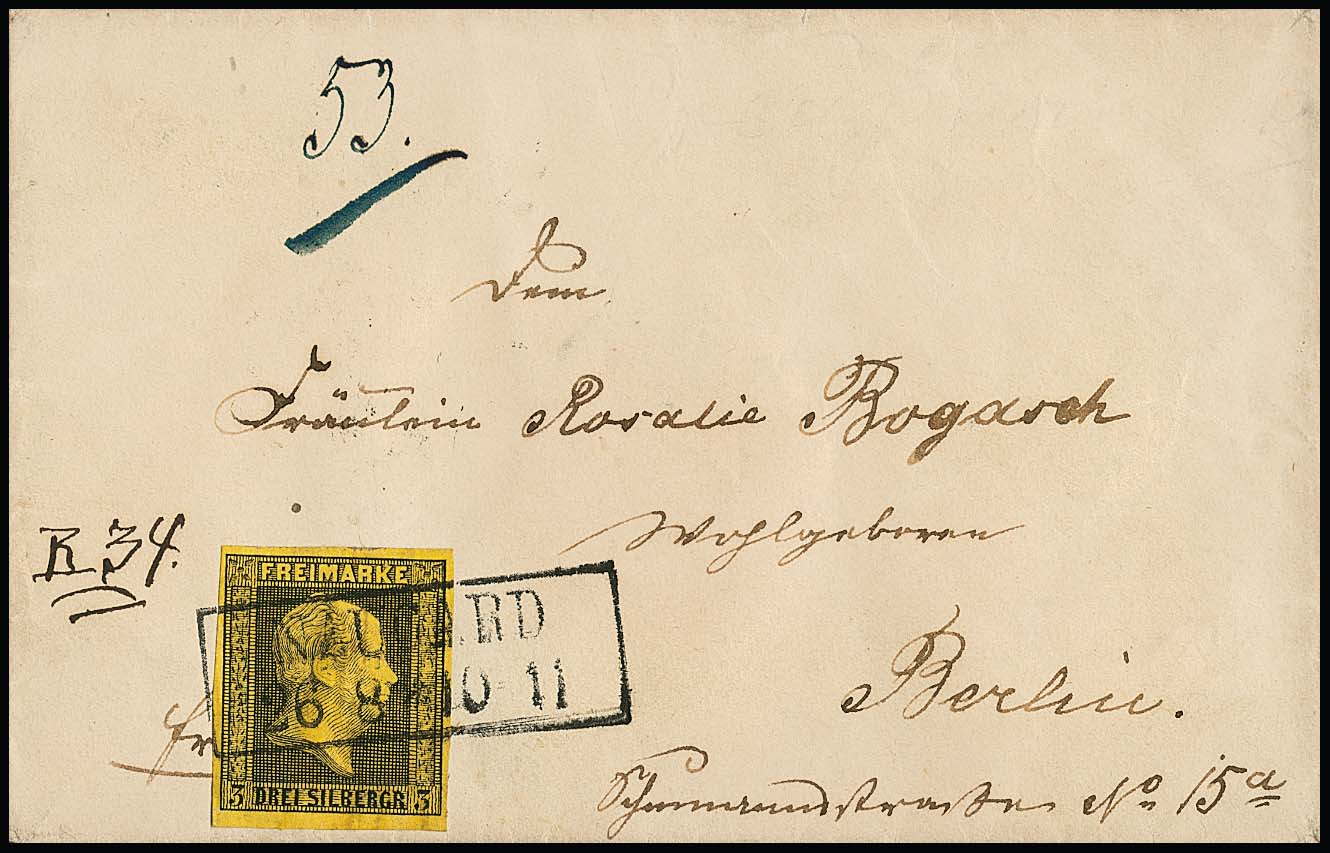 53.
Dem
Fräulein Rosalie Bogasch
Wohlgeboren
R 34.
FREIMARKE
ARD
6 8 10-11
3 DREI SILBERGR. 3
fr
Berlin.
Schumannstraße No 15a